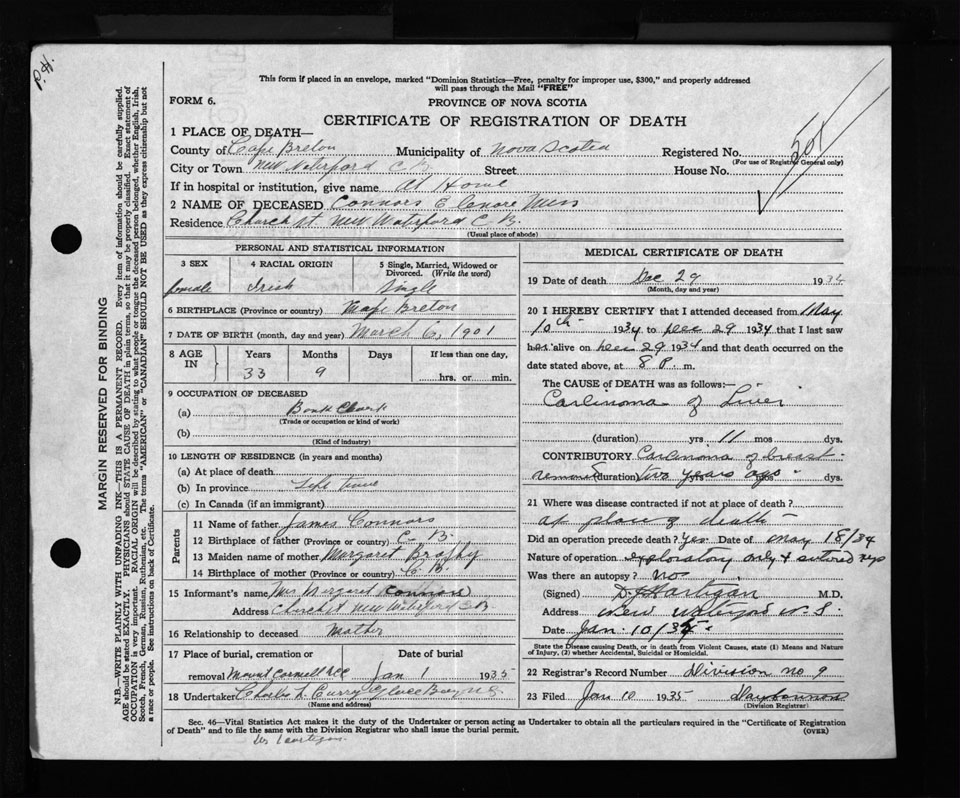 P.H.
This form if placed in an envelope, marked "Dominion Statistics—Free, penalty for improper use, $300," and properly addressed
will pass through the Mail "FREE"
FORM 6.
PROVINCE OF NOVA SCOTIA
CERTIFICATE OF REGISTRATION OF DEATH
1 PLACE OF DEATH—
County of Cape Breton Municipality of Nova Scotia Registered No. 501
(For use of Registrar General only)
City or Town New Waterford C B Street House No.
If in hospital or institution, give name At Home
2 NAME OF DECEASED Connors Elenore Miss
Residence Church St New Waterford C. B.
(Usual place of abode)
PERSONAL AND STATISTICAL INFORMATION
3 SEX
female
4 RACIAL ORIGIN
Irish
5 Single, Married, Widowed or
Divorced. (Write the word)
Single
6 BIRTHPLACE (Province or country) Cape Breton
7 DATE OF BIRTH (month, day and year) March 6, 1901
8 AGE
IN
Years
33
Months
9
Days
If less than one day,
hrs. or min.
9 OCCUPATION OF DECEASED
(a) Book Clerk
(Trade or occupation or kind of work)
(b)
(Kind of industry)
10 LENGTH OF RESIDENCE (in years and months)
(a) At place of death
(b) In province Life time
(c) In Canada (if an immigrant)
Parents
11 Name of father James Connors
12 Birthplace of father (Province or country) C. B.
13 Maiden name of mother Margaret Brophy
14 Birthplace of mother (Province or country) C. B.
15 Informant's name Mrs Margaret Connors
Address Church St New Waterford C B
16 Relationship to deceased Mother
17 Place of burial, cremation or
removal Mount Carmell
Date of burial
Jan 1 1935
18 Undertaker Charles L. Curry Glace Bay N.S.
(Name and address)
MEDICAL CERTIFICATE OF DEATH
19 Date of death Dec 29 1934
(Month, day and year)
20 I HEREBY CERTIFY that I attended deceased from May
10th 1934 to Dec 29 1934 that I last saw
her alive on Dec 29 1934 and that death occurred on the
date stated above, at 8 P. m.
The CAUSE of DEATH was as follows:—
Carcinoma of Liver
(duration) yrs 11 mos dys.
CONTRIBUTORY Carcinoma of breast
removed (duration) two years ago dys.
21 Where was disease contracted if not at place of death?
at place of death
Did an operation precede death? Yes Date of May 18/34
Nature of operation exploratory only & sutured up
Was there an autopsy? No
(Signed) D J Hartigan M.D.
Address New Waterford N. S.
Date Jan. 10/35.
State the Disease causing Death, or in death from Violent Causes, state (1) Means and Nature
of Injury, (2) whether Accidental, Suicidal or Homicidal.
22 Registrar's Record Number Division No 9
23 Filed Jan 10 1935
(Division Registrar)
Sec. 46—Vital Statistics Act makes it the duty of the Undertaker or person acting as Undertaker to obtain all the particulars required in the "Certificate of Registration
of Death" and to file the same with the Division Registrar who shall issue the burial permit. (OVER)
MARGIN RESERVED FOR BINDING
N.B.—WRITE PLAINLY WITH UNFADING INK—THIS IS A PERMANENT RECORD. Every item of information should be carefully supplied.
AGE should be stated EXACTLY. PHYSICIANS should STATE CAUSE OF DEATH in plain terms, so that it may be properly classified. Exact statement of
OCCUPATION is very important. RACIAL ORIGIN will be described by stating to what people or tongue the deceased person belonged, whether English, Irish,
Scotch, French, German, Russian, Ruthenian, etc. The terms "AMERICAN" or "CANADIAN" SHOULD NOT BE USED as they express citizenship but not
a race or people. See instructions on back of Certificate.